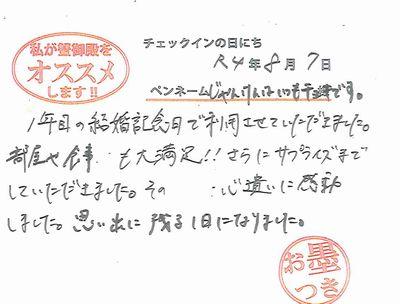 私が蟹御殿を
オススメ
します!!
チェックインの日にち
R4年8月7日
ペンネーム じゃんけんはいつもチョキです。
1年目の結婚記念日で利用させていただきました。
部屋や食事 も大満足!! さらにサプライズまで
していただきました。その 心遣いに感動
しました。思い出に残る1日になりました。
お墨
つき